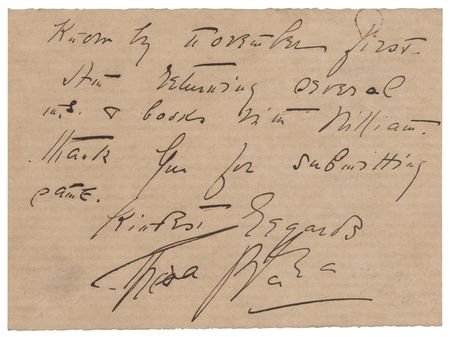 Know by November first.
Am returning several
m.s. & books with William.
Thank you for submitting
same.
Kindest Regards
Theda Bara